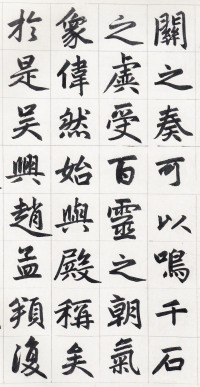 闢之奏可以鳴千石
之虡受百靈之朝氣
象偉然始與殿稱矣
於是吳興趙孟頫復